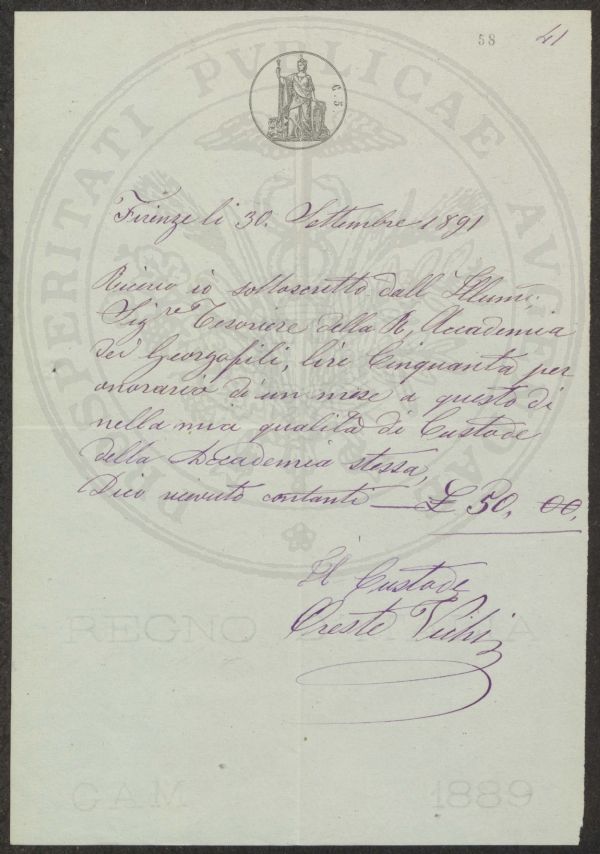 58 41
C. 5
PROSPERITATI PVBLICAE AVGENDAE
Firenze li 30. Settembre 1891
Ricevo io sottoscritto dall' Illum.
Sig.re Tesoriere della R. Accademia
dei Georgofili, lire Cinquanta per
onorario di un mese a questo dì
nella mia qualità di Custode
della Accademia stessa,
Dico ricevuto contanti — £ 50, 00,
Il Custode
Oreste
REGNO D'ITALIA
GAM 1889